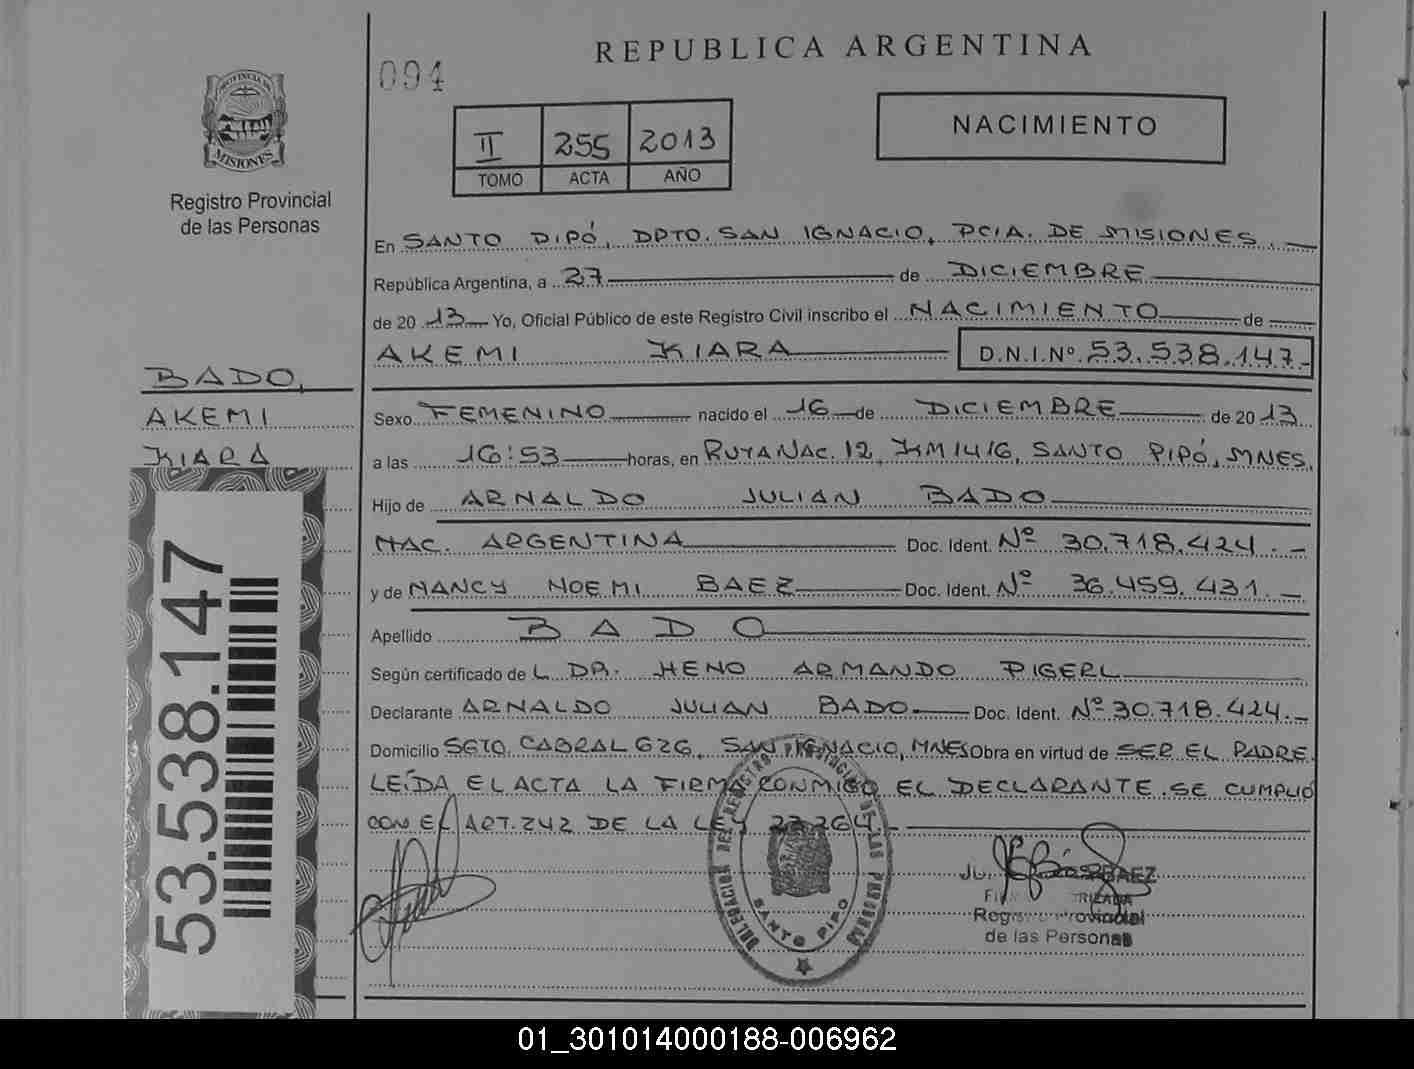 REPUBLICA ARGENTINA
094
PROVINCIA DE
MISIONES
Registro Provincial
de las Personas
II 255 2013
TOMO ACTA AÑO
NACIMIENTO
En SANTO PIPÓ, DPTO. SAN IGNACIO, PCIA. DE MISIONES.
República Argentina, a 27 de DICIEMBRE
de 2013 Yo, Oficial Público de este Registro Civil inscribo el NACIMIENTO de
AKEMI KIARA D.N.I.Nº 53.538.147-
BADO,
AKEMI
KIARA
Sexo FEMENINO nacido el 16 de DICIEMBRE de 2013
a las 16:53 horas, en RUTA NAC. 12, KM 1416, SANTO PIPÓ, MNES.
Hijo de ARNALDO JULIAN BADO
NAC. ARGENTINA Doc. Ident. Nº 30.718.424.-
y de NANCY NOEMI BAEZ Doc. Ident. Nº 36.459.431.-
Apellido BADO
Según certificado de L DR. HENO ARMANDO PIGERL
Declarante ARNALDO JULIAN BADO Doc. Ident. Nº 30.718.424.-
Domicilio SGTO. CABRAL 626, SAN IGNACIO, MNES Obra en virtud de SER EL PADRE
LEÍDA EL ACTA LA FIRMA CONMIGO EL DECLARANTE. SE CUMPLIÓ
CON EL ART. 242 DE LA LEY 23.264.-
53.538.147
DELEGACION DEL REGISTRO PROVINCIAL DE LAS PERSONAS
SANTO PIPO
BAEZ
Registro Provincial
de las Personas
01_301014000188-006962